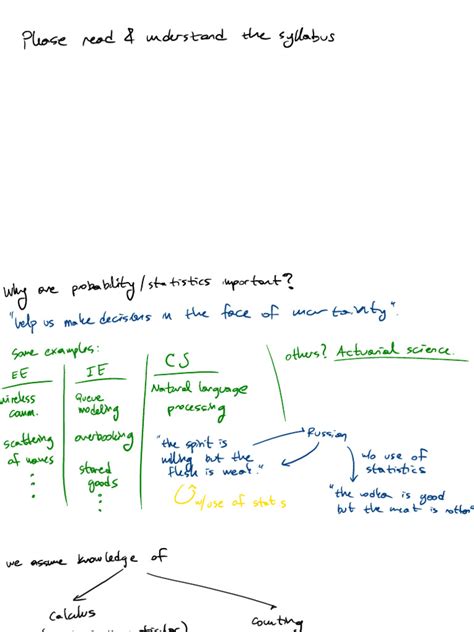 Please read & understand the syllabus
Why are probability/statistics important?
"help us make decisions in the face of uncertainty".
some examples:
EE
wireless
comm.
scattering
of waves
IE
queue
modeling
overbooking
stored
goods
CS
Natural language
processing
"the spirit is
willing but the
flesh is weak."
w/use of stats
others? Actuarial science.
Russian
w/o use of
statistics
"the vodka is good
but the meat is rotten"
we assume knowledge of
calculus
counting